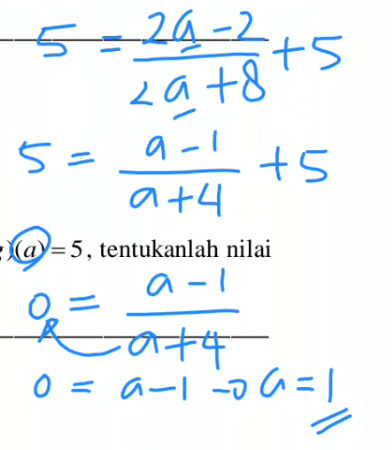 5 = (2a-2)/(2a+8) + 5
5 = (a-1)/(a+4) + 5
)(a) = 5, tentukanlah nilai
0 = (a-1)/(a+4)
0 = a-1 → a = 1